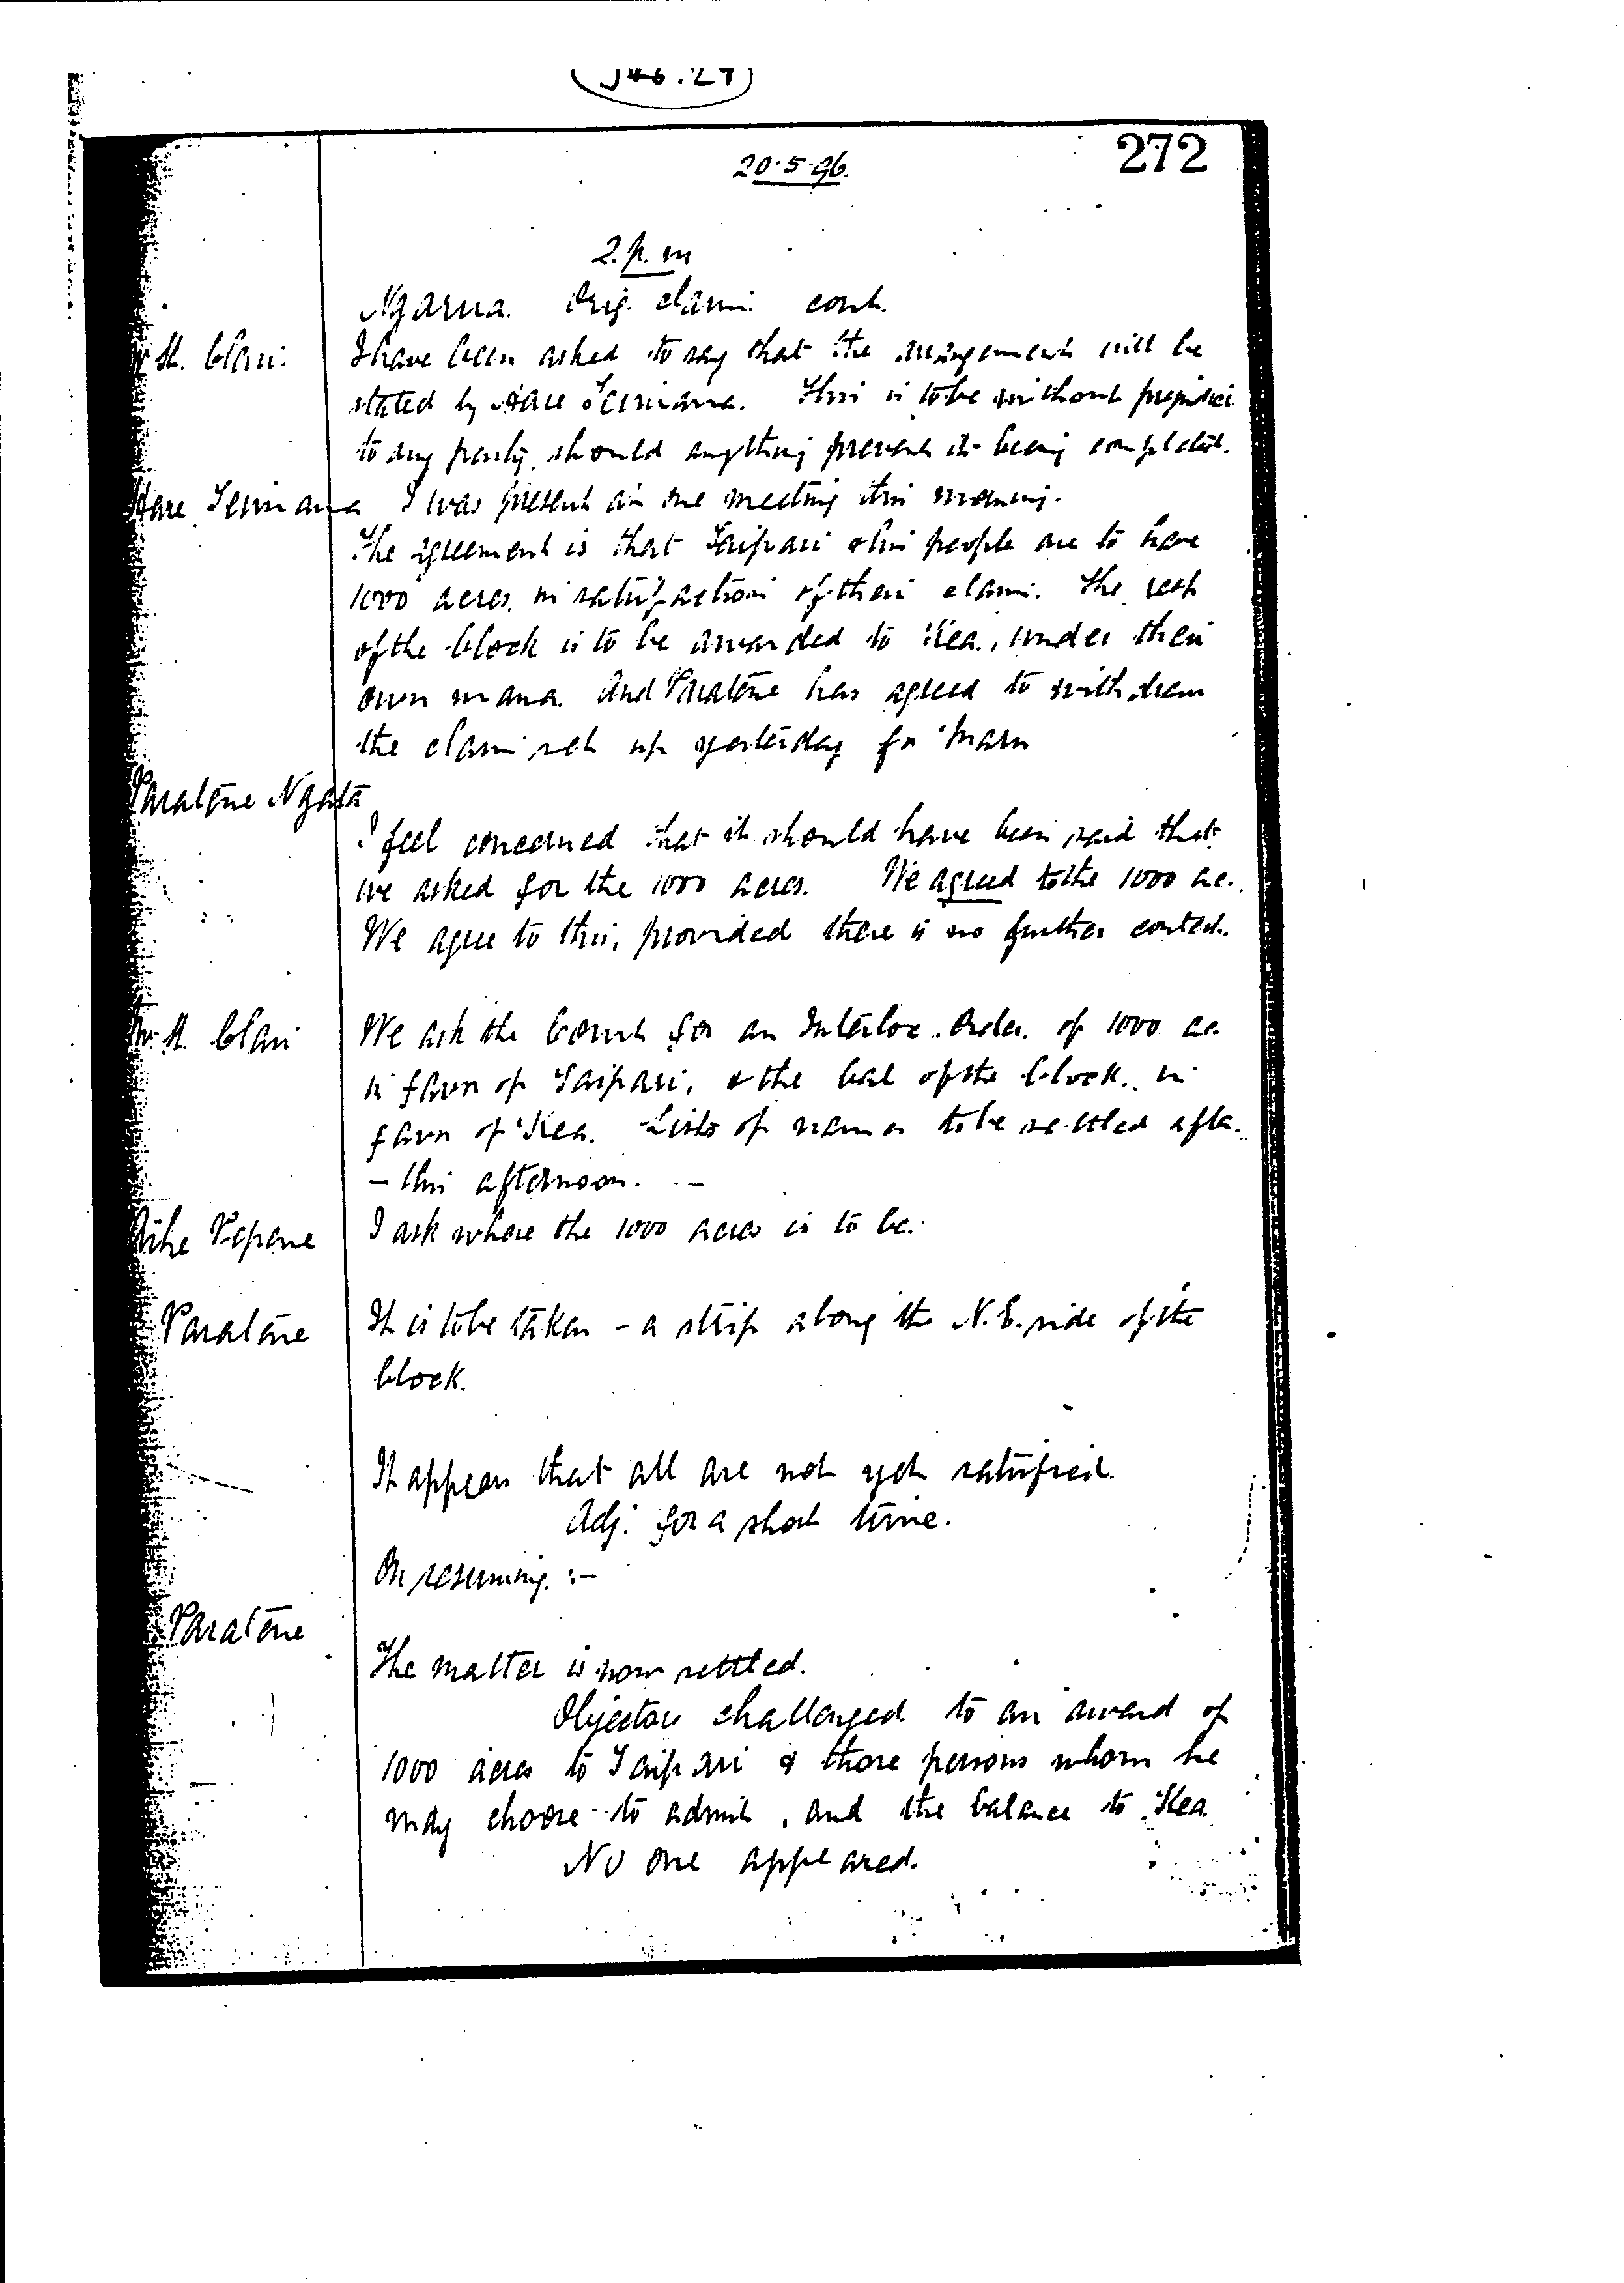 272
20.5.96.
2. p. m
Ngarua. Orig. claim cont.
St. Clair. I have been asked to say that the arrangement will be
stated by Hare Teimana. This is to be without prejudice
to any party, should anything prevent it being completed.
Hare Teimana I was present at the meeting this morning.
The agreement is that Taipari & his people are to have
1000 acres in satisfaction of their claim. The rest
of the block is to be awarded to Kea, under their
own mana. And Paratene has agreed to withdraw
the claim set up yesterday for
Paratene Ngata
I feel concerned that it should have been said that
we asked for the 1000 acres. We agreed to the 1000 ac.
We agree to this, provided there is no further contest.
Mr. St. Clair We ask the Court for an Interloc. Order. of 1000 ac.
in favor of Taipari, & the bal of the block in
favor of Kea. Lists of names to be settled after.
- this afternoon. -
Pepene I ask where the 1000 acres is to be.
Paratene It is to be taken - a strip along the N.E. side of the
block.
It appears that all are not yet satisfied.
Adj. for a short time.
On resuming :-
Paratene
The matter is now settled.
Objectors challenged to an award of
1000 acres to Taipari & those persons whom he
may choose to admit, and the balance to Kea.
No one appeared.